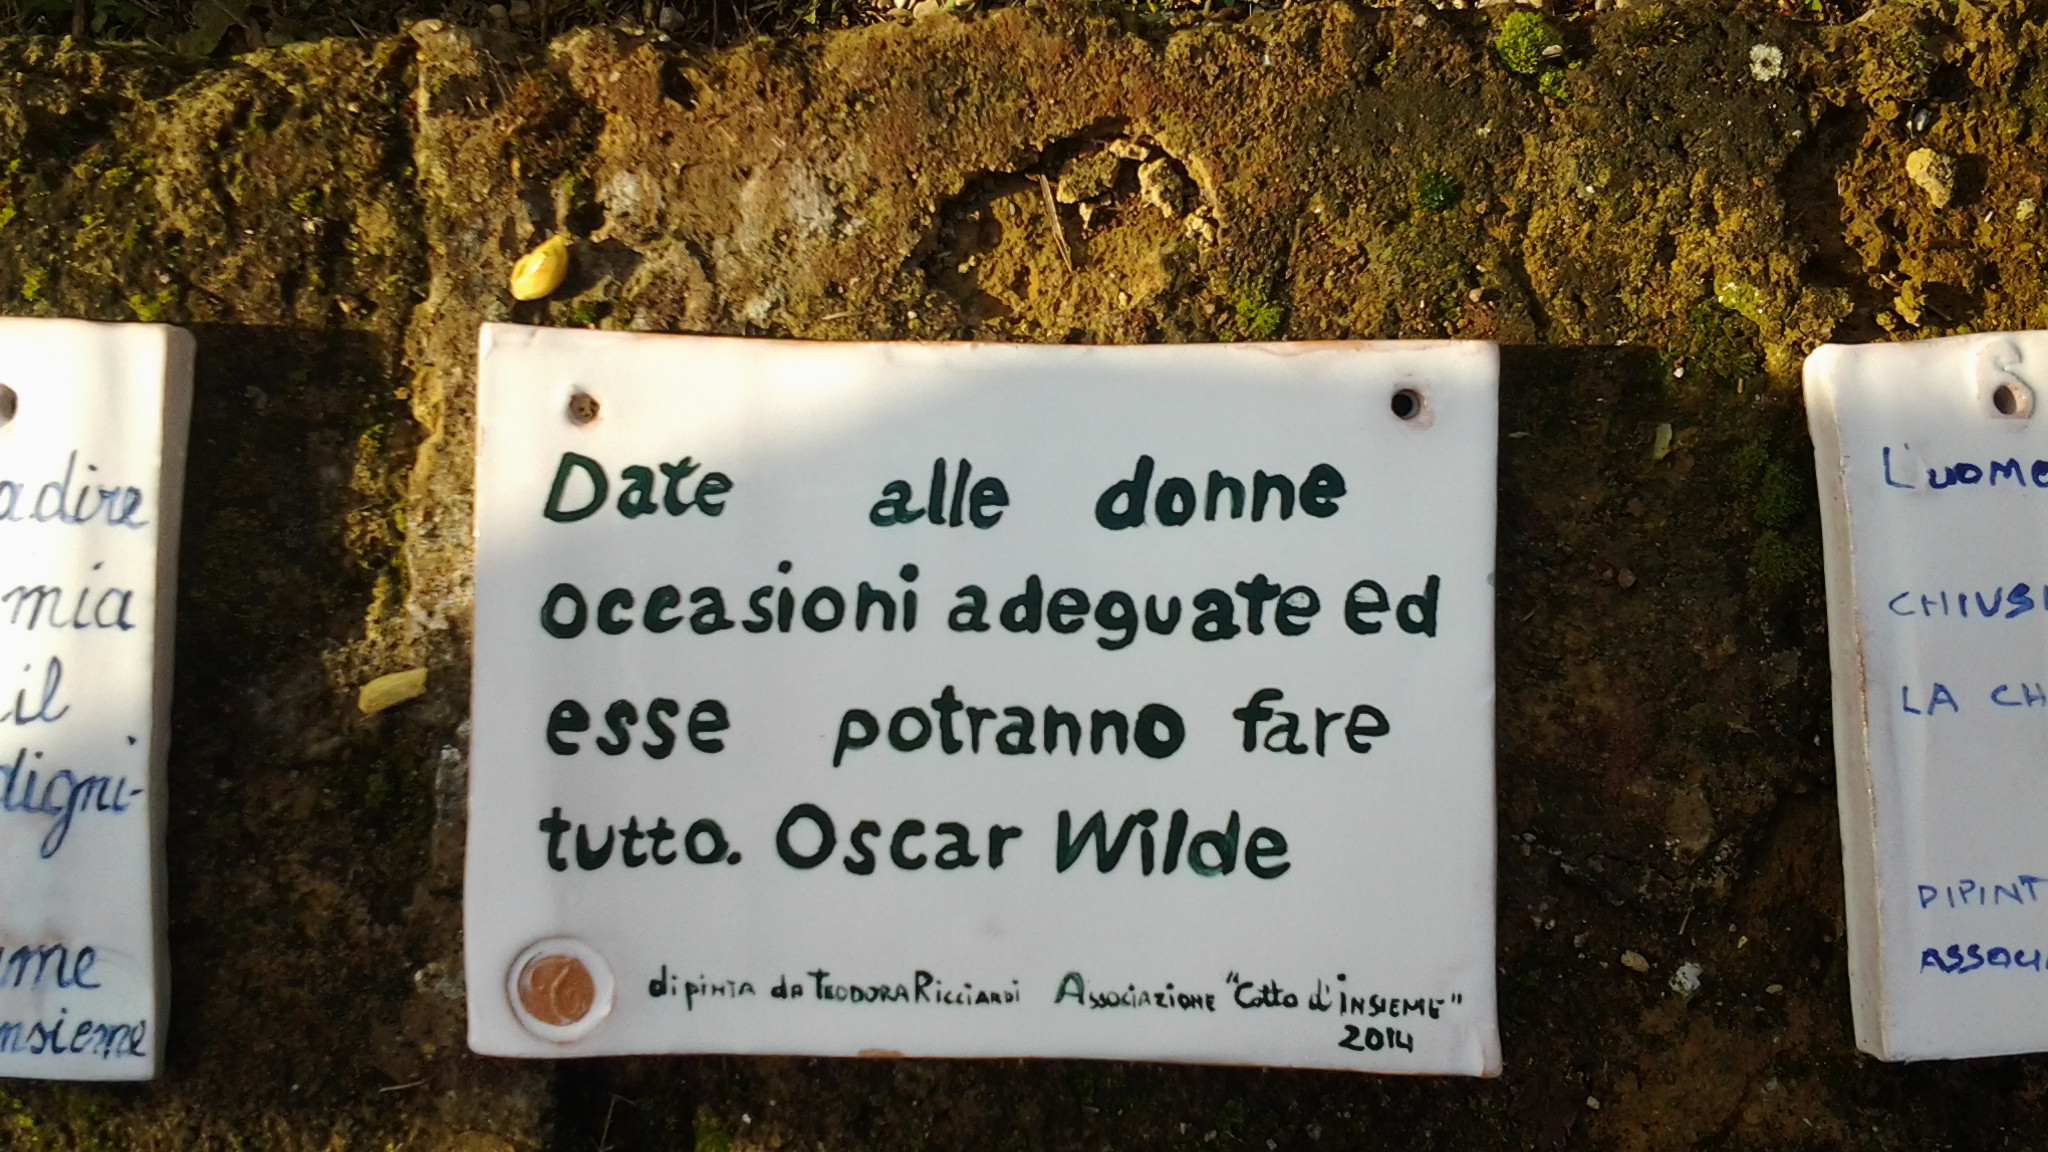 adire
mia
il
digni-
me
nsieme
Date alle donne
occasioni adeguate ed
esse potranno fare
tutto. Oscar Wilde
dipinta da Teodora Ricciardi Associazione "Cotto d'insieme"
2014
L'uome
CHIUSI
LA CH
DIPINT
ASSOCI